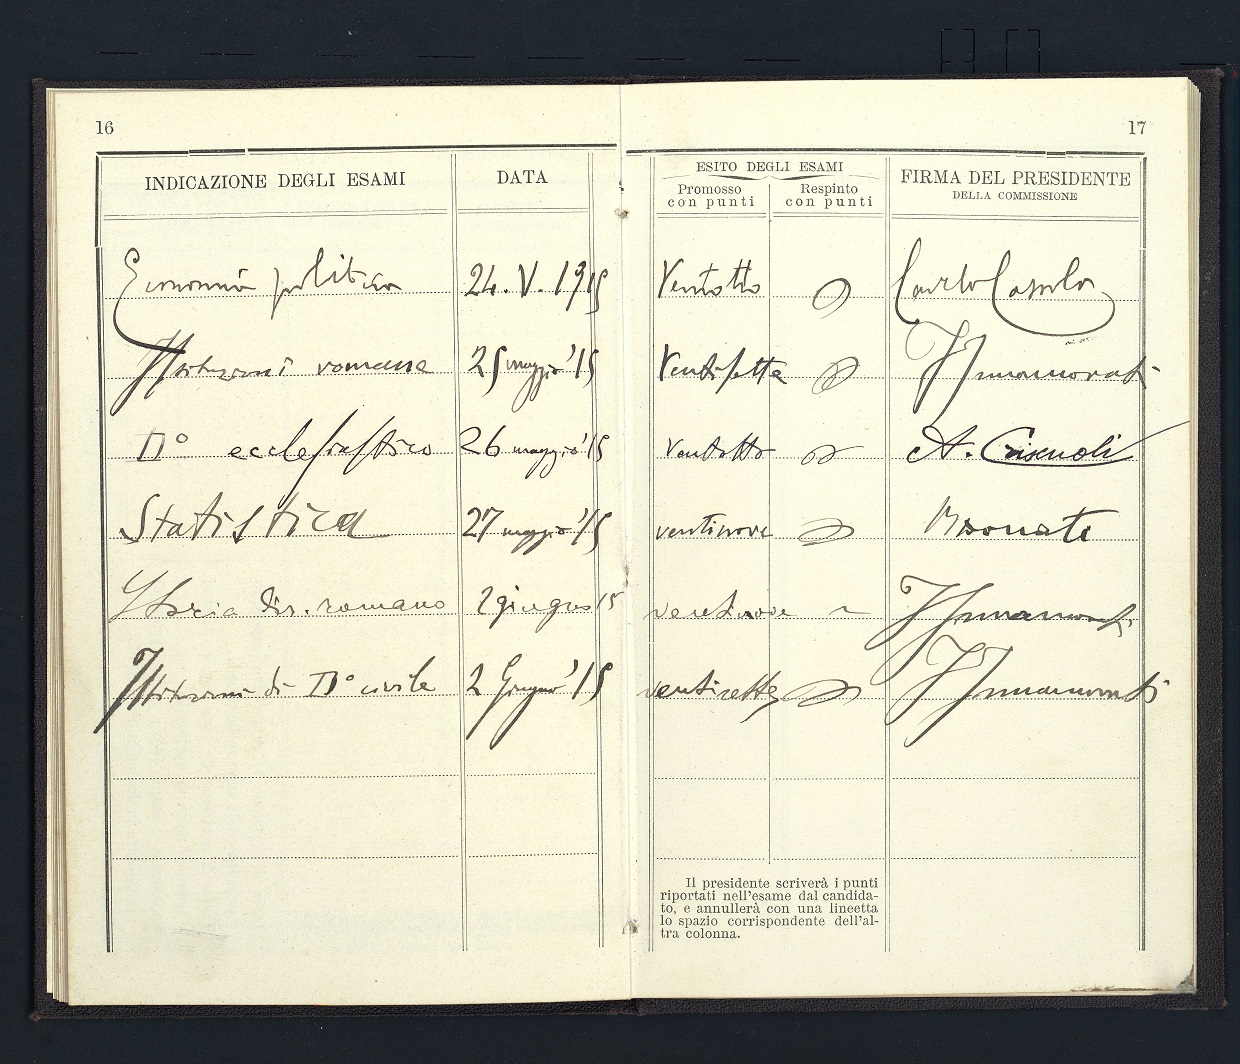 16
17
INDICAZIONE DEGLI ESAMI
DATA
ESITO DEGLI ESAMI
Promosso con punti
Respinto con punti
FIRMA DEL PRESIDENTE
DELLA COMMISSIONE
Economia politica 24. V. 1915 Ventotto Carlo
Istituzioni romane 25 maggio '15 Ventisette Innamorati
D° ecclesiastico 26 maggio '15 ventotto A.
Statistica 27 maggio '15 ventinove
Storia dir. romano 2 giugno 15 ventinove Innamorati
Istituzioni di D° civile 2 Giugno '15 ventisette Innamorati
Il presidente scriverà i punti
riportati nell'esame dal candida-
to, e annullerà con una lineetta
lo spazio corrispondente dell'al-
tra colonna.